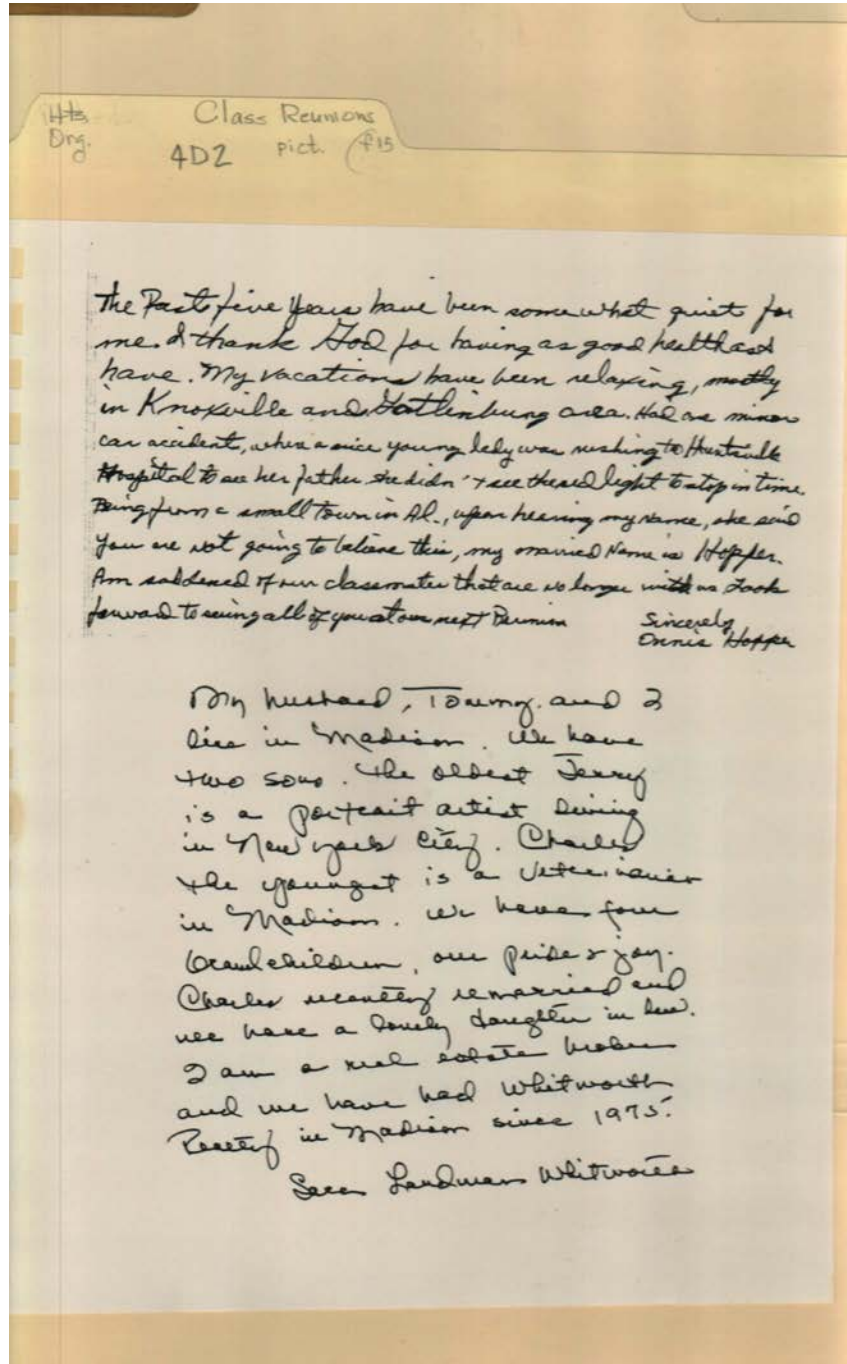 Hts. Class Reunions
Org. 4D2 pict. f15
The Past five Years have been somewhat quiet for
me. I thank God for having as good health as I
have. My vacations have been relaxing, mostly
in Knoxville and Gatlinburg area. Had one minor
car accident, where a nice young lady was rushing to Huntsville
Hospital to see her father she didn't see the red light to stop in time.
Being from a small town in Al., upon hearing my name, she said
You are not going to believe this, my married Name is Hopper.
Am saddened of our classmates that are no longer with us Look
forward to seeing all of you at our next Reunion
Sincerely
Onnie Hopper
My husband, Tommy and I
live in Madison. We have
two sons. The oldest Jerry
is a portrait artist living
in New York City. Charles
the youngest is a Veterinarian
in Madison. We have four
Grandchildren, our pride & joy.
Charles recently remarried and
we have a lovely daughter in law.
I am a real estate broker
and we have had Whitworth
Realty in Madison since 1975.
Sara Landman Whitworth